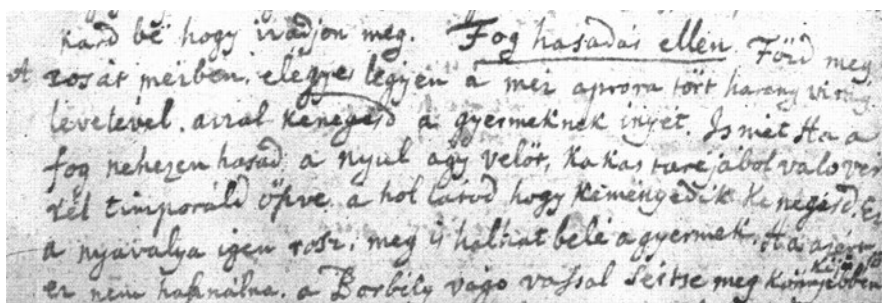 kard bé hogy irádjon meg. Fog hasadás ellen. Főzd meg
A rosát mézben, elegyes légyen a méz apróra tört harang virág
levelével. azzal kenegesd a gyermeknek inyét. Ismét Ha a
fog nehezen hasad a nyul agy velőt, Kakas taréjából való vér
rél timporáld öszve a hol látod hogy keményedik kenegesd. Ez
a nyavalya igen rosz, meg is halhat belé a gyermek. Ha
ez nem használna, a Borbély vágó vassal sértse meg könnyebben